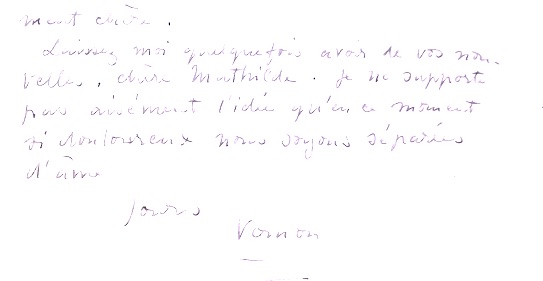 ment chère.
Laissez moi quelquefois avoir de vos nou-
velles, chère Mathilde. Je ne supporte
pas aisément l'idée qu'en ce moment
si douloureux nous soyons séparées
d'âme
Yours
Vernon